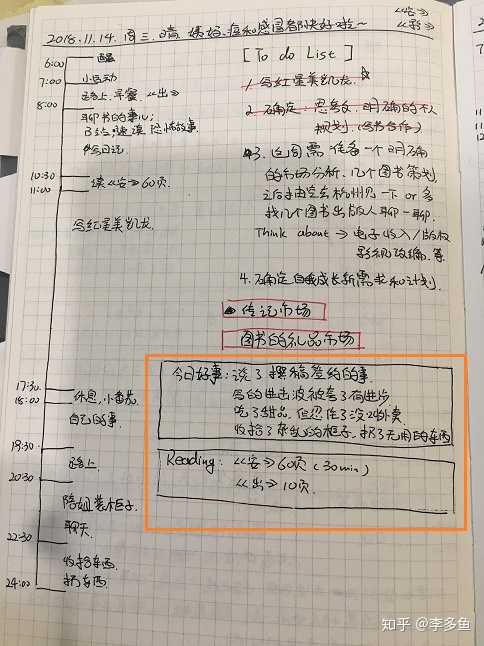 2018.11.14. 周三. 晴 姨妈、痘和感冒都快好啦~
《容》
《彩》
6:00 醒
7:00 小运动
路上.早餐.《出》
8:00
聊书的事儿;
日记
10:30
11:00 读《容》60页.
写红星美凯龙
17:30
18:00 休息,小番茄
自己的事
19:30
路上
20:30
陪姐装柜子.
聊天
22:30
收拾东西
扔东西
24:00
[To do List]
1. 写红星美凯龙.
2. 确定:思考 明确的个人规划.(写书合作)
3. 这周需 准备一个明确
的市场分析.几个图书策划,
之后抽空去杭州见一下 or 多
找几个图书出版人聊一聊.
Think about → 电子收入/版权
影视改编.等.
4. 确定自我成长新需求和计划.
传记市场
图书的礼品市场
今日好事:说了撰稿签约的事.
写的
被夸了有进步
吃了甜品,但忍住了没叫外卖
收拾了杂乱的柜子,扔了无用的东西
Reading: 《容》60页(30min)
《出》10页.
知乎 @李多鱼